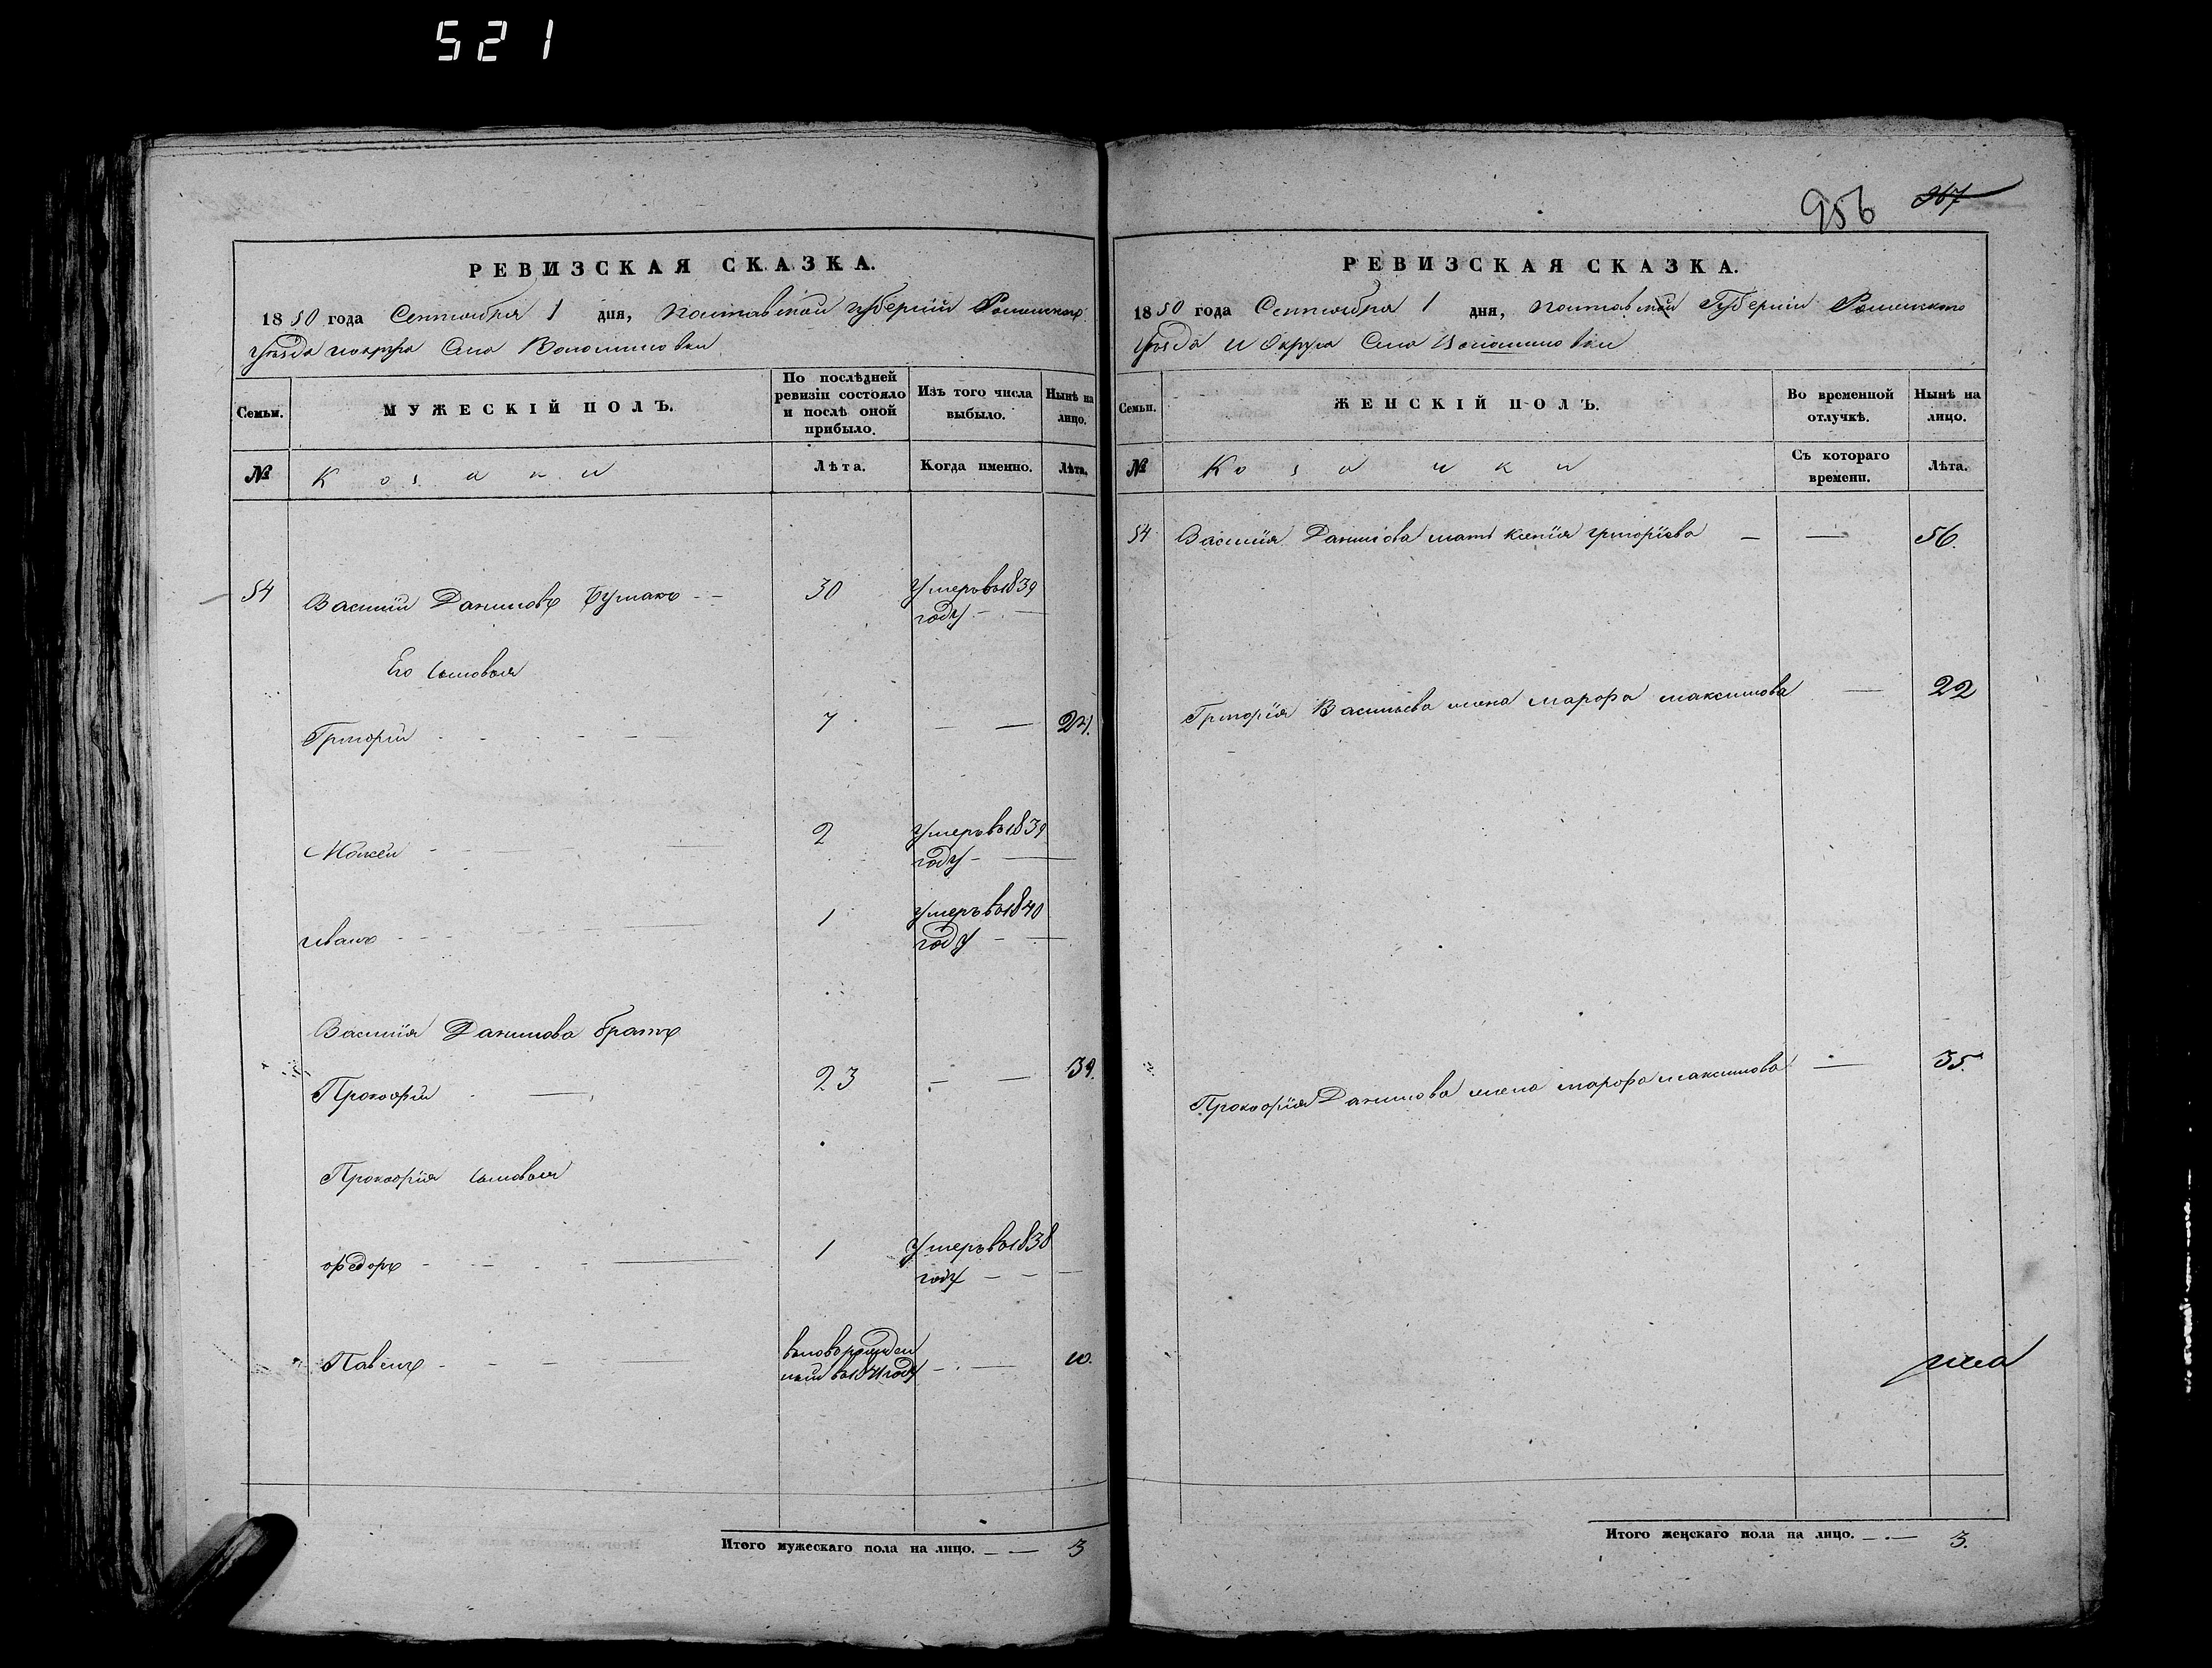 521
956 367
РЕВИЗСКАЯ СКАЗКА.
1850 года Сентября 1 дня, Полтавской губерніи Роменского
уѣзда и округа Села Волошиновки
Семьи. МУЖЕСКІЙ ПОЛЪ. По послѣдней ревизіи состояло и послѣ оной прибыло. Изъ того числа выбыло. Нынѣ на лицо.
№ Козаки Лѣта. Когда именно. Лѣта.
54 Василий Даниловъ Чумакъ 30 Умеръ въ 1839
году
Его сыновья
Григорій 7 24.
Мойсей 2 Умеръ въ 1839
году
иванъ 1 Умеръ въ 1840
году
Василія Данилова братъ
Прокофій 23 39.
Прокофія сыновья
федоръ 1 Умеръ въ 1838
году
Павелъ вновь рожден
ный въ 1841 году 10.
Итого мужескаго пола на лицо. 3
РЕВИЗСКАЯ СКАЗКА.
1850 года Сентября 1 дня, Полтавской Губерніи Роменского
Уѣзда и Округа Села Волошиновки
Семьи. ЖЕНСКІЙ ПОЛЪ. Во временной отлучкѣ. Нынѣ на лицо.
№ Козачки Съ котораго времени. Лѣта.
54 Василія Данилова мать Ксенія григоріева 56.
Григорія Васильева жена марфа максимова 22
Прокофія Данилова жена марфа максимова 35.
Итого женскаго пола на лицо. 3.